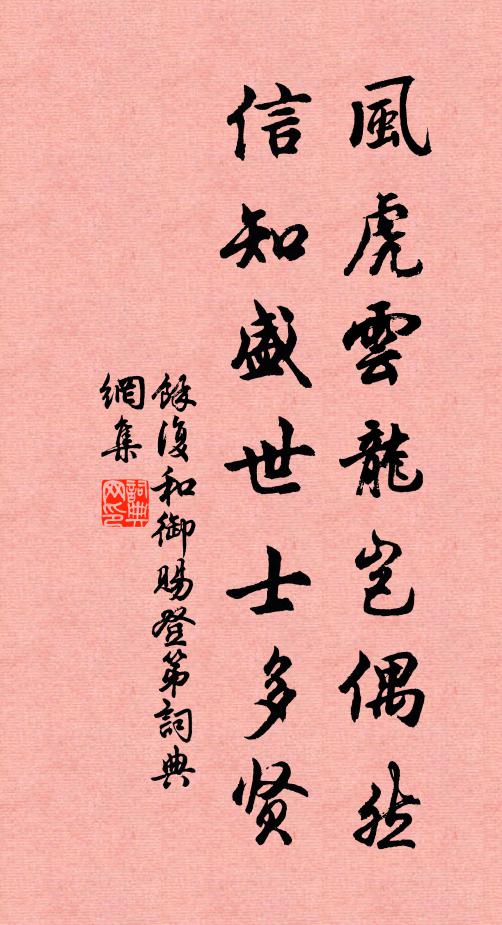 風虎雲龍豈偶然
信知盛世士多贤
餘復和御賜登第詞典
網集
詞典
网印